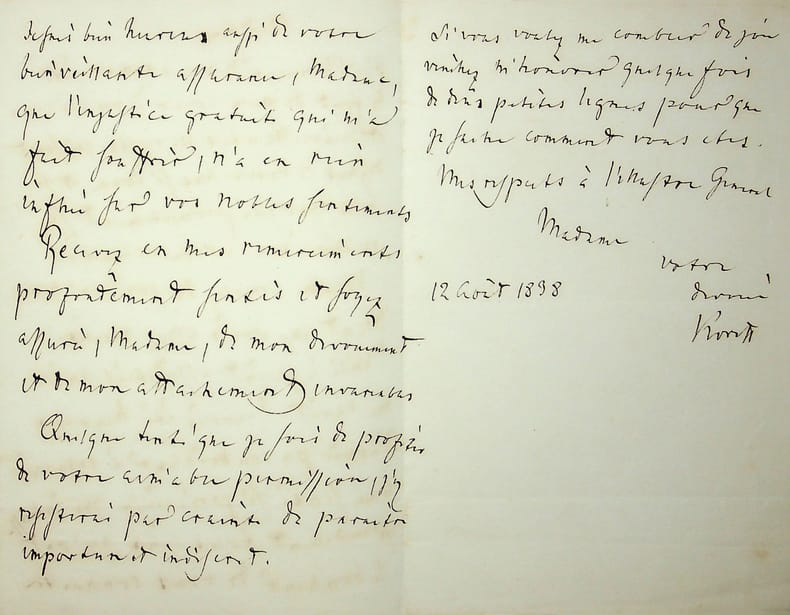 Je suis bien heureux aussi de votre
bienveillante assurance, Madame,
que l'injustice gratuite qui m'a
fait souffrir, n'a en rien
influé sur vos nobles sentiments
Recevez en mes remerciments
profondément sentis et soyez
assurée, Madame, de mon dévouement
et de mon attachement invariables
Quelque tenté que je sois de profiter
de votre aimable permission, j'y
résisterai par crainte de paraître
importun et indiscret.
Si vous voulez me combler de joie
veuillez m'honorer quelque fois
de deux petites lignes pour que
je sache comment vous êtes.
Mes respects à l'illustre Général
Madame
votre
dévoué
12 Août 1898